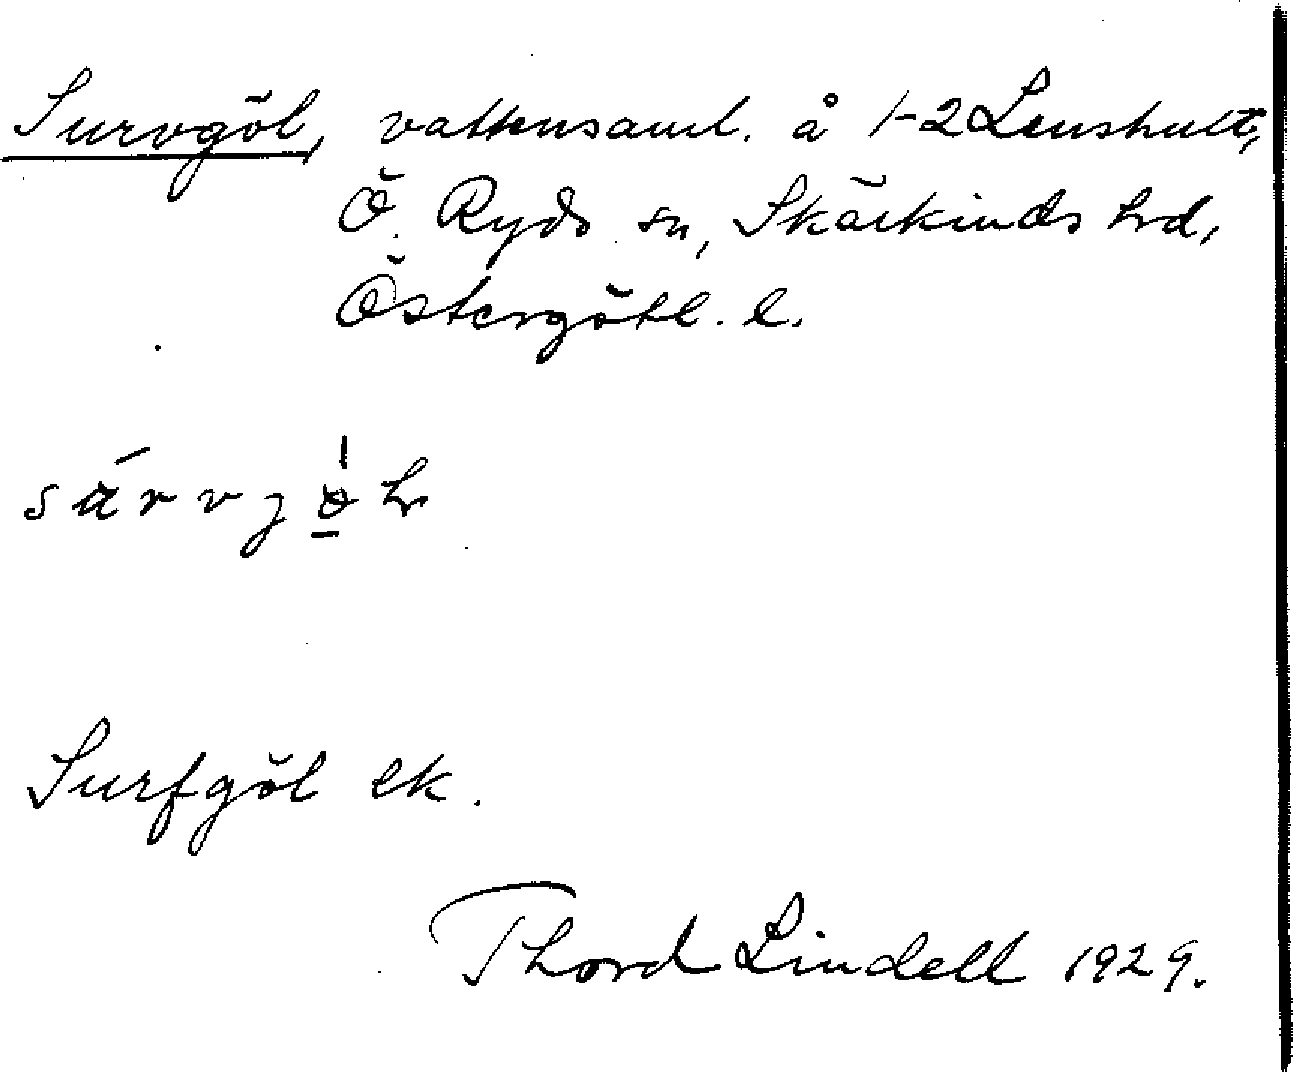 Survgöl, vattensaml. å 1-2 Lenshult,
Ö. Ryds sn, Skärkinds hrd,
Östergötl. l.
Surfgöl ek.
Thord Lindell 1929.